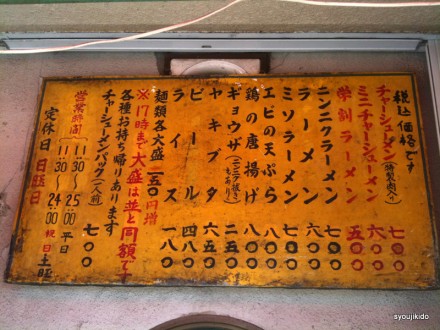 税込価格です
チャーシューメン(特製肉入) 七〇〇
ミニチャーシューメン 六〇〇
学割ラーメン 五〇〇
ニンニクラーメン 七〇〇
ラーメン 六〇〇
ミソラーメン 七〇〇
エビの天ぷら 八〇〇
鶏の唐揚げ 八〇〇
ギョウザ(ニンニク抜きもあり) 二五〇
ヤキブタ 六五〇
ビール 四八〇
ライス 一八〇
麺類各大盛一五〇円増
※17時まで大盛は並と同額です
各種お持ち帰りあります
チャーシューメンパック(一人前) 七〇〇
営業時間 11:30〜25:00 平日
11:30〜24:00 祝日土曜
定休日 日曜日
syoujikido